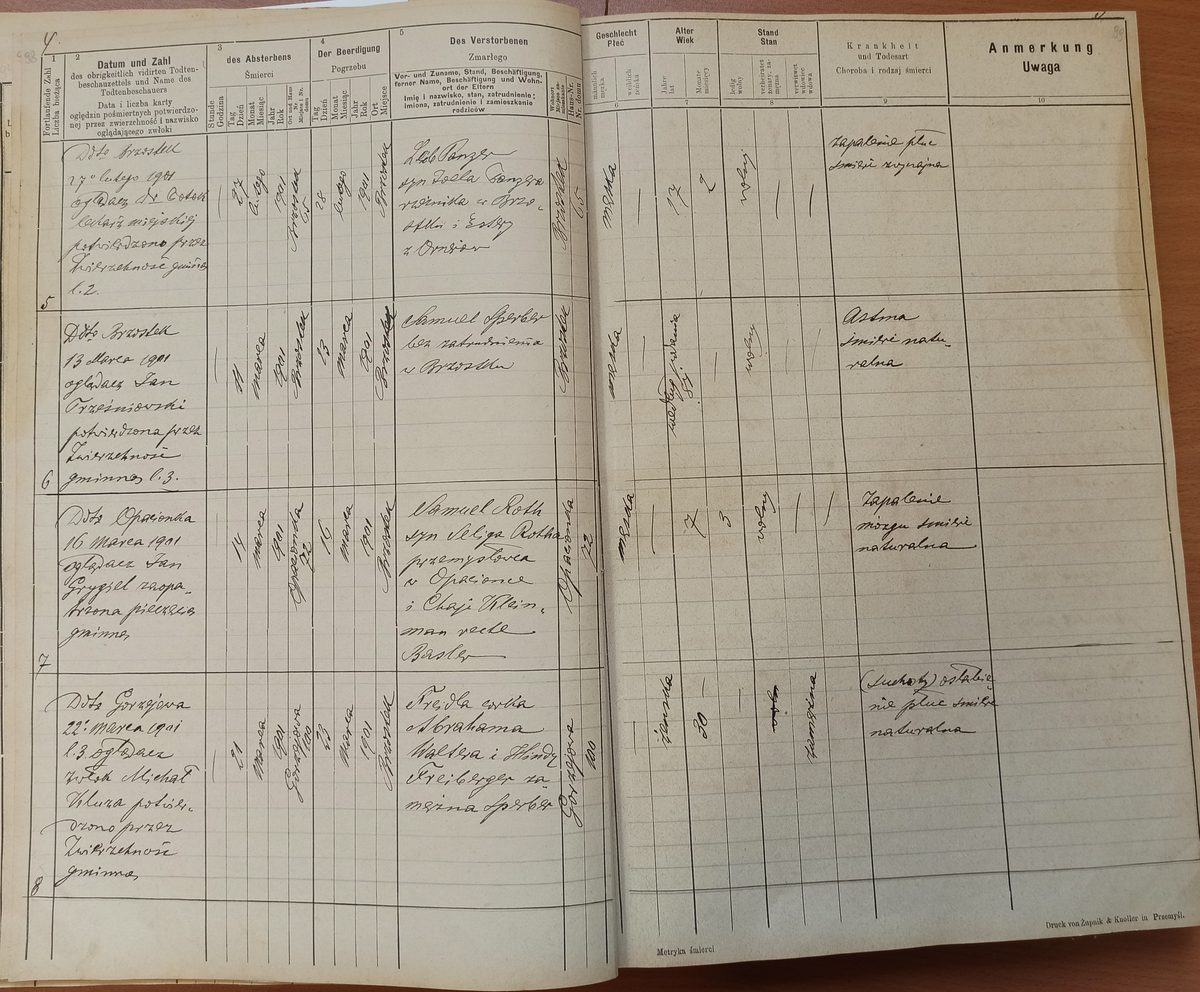 4.
1
Fortlaufende Zahl
Liczba bieżąca
2
Datum und Zahl
des obrigkeitlich vidirten Todten-
beschauzettels und Name des
Todtenbeschauers
Data i liczba karty
oględzin pośmiertnych potwierdzo-
nej przez zwierzchność i nazwisko
oglądającego zwłoki
3
des Absterbens
Śmierci
Stunde
Godzina
Tag
Dzień
Monat
Miesiąc
Jahr
Rok
4
Der Beerdigung
Pogrzebu
Tag
Dzień
Monat
Miesiąc
Jahr
Rok
Ort
Miejsce
5
Des Verstorbenen
Zmarłego
Vor- und Zuname, Stand, Beschäftigung,
ferner Name, Beschäftigung und Wohn-
ort der Eltern
Imię i nazwisko, stan, zatrudnienie;
imiona, zatrudnienie i zamieszkanie
rodziców
Haus-Nr.
Nr. domu
Geschlecht
Płeć
männlich
męska
weiblich
żeńska
6
Alter
Wiek
Jahre
lat
Monate
miesięcy
7
Stand
Stan
ledig
wolny
verheiratet
żonaty, za-
mężna
verwitwet
wdowiec
wdowa
8
Krankheit
und Todesart
Choroba i rodzaj śmierci
9
Anmerkung
Uwaga
10
5
Ddto Brzostek
27 lutego 1901
oglądacz Dr
lekarz miejski
potwierdzono przez
Zwierzchność gminną
l. 2.
27
lutego
1901
Brzostek
65
28
lutego
1901
Brzostek
Leib Panzer
syn Joela Panzera
rzeźnika w Brzo-
stku i Estery
z
Brzostek
65
męska
17
2
wolny
Zapalenie płuc
śmierć zwyczajna
6
Ddto Brzostek
13 Marca 1901
oglądacz Jan
Trześniowski
potwierdzona przez
Zwierzchność
gminną l. 3.
11
marca
1901
Brzostek
13
marca
1901
Brzostek
Samuel Sperber
bez zatrudnienia
w Brzostku
Brzostek
męska
według podania
wolny
Astma
śmierć natu-
ralna
7
Ddto Opacionka
16 Marca 1901
oglądacz Jan
Grygiel zaopa-
trzona pieczęcią
gminną
14
marca
1901
Opacionka
72
16
marca
1901
Brzostek
Samuel Roth
syn Seliga Rotha
przemysłowca
w Opacionce
i Chaji Klein-
man recte
Basler
Opacionka
72
męska
7
3
wolny
Zapalenie
mózgu śmierć
naturalna
8
Ddto Gorzejowa
22. Marca 1901
l. 3 oglądacz
zwłok Michał
Kluza potwier-
dzono przez
Zwierzchność
gminną
21
marca
1901
Gorzejowa
100
23
marca
1901
Brzostek
Freidla córka
Abrahama
Waltera i Hindy
Freiberger za-
mężna Sperber
Gorzejowa
100
żeńska
30
zamężna
(suchoty) osłabie-
nie płuc śmierć
naturalna
Metryka śmierci
Druck von Żupnik & Knoller in Przemyśl.